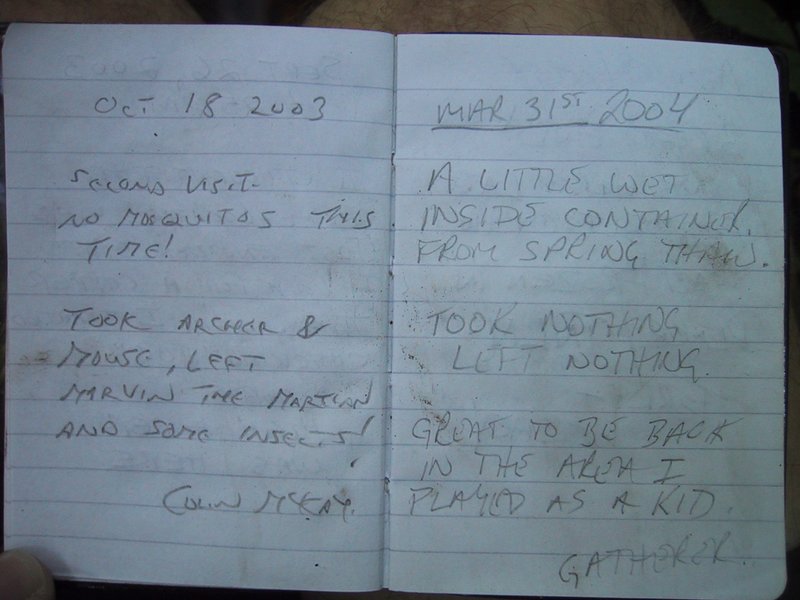 OCT 18 2003
SECOND VISIT-
NO MOSQUITOS THIS
TIME!
TOOK ARCHER &
MOUSE, LEFT
MARVIN THE MARTIAN
AND SOME INSECTS!
COLIN MCKAY.
MAR 31ST 2004
A LITTLE WET
INSIDE CONTAINER.
FROM SPRING THAW.
TOOK NOTHING
LEFT NOTHING.
GREAT TO BE BACK
IN THE AREA I
PLAYED AS A KID.
GATHERER.